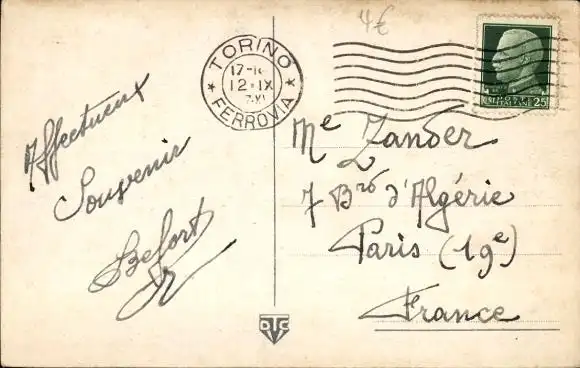 4€
TORINO
17-1
12·IX
XI
FERROVIA
POSTE ITALIANE 25
Affectueux
Souvenir
Belfort
Me Zander
7 Brd d'Algérie
Paris (19e)
France
DTC